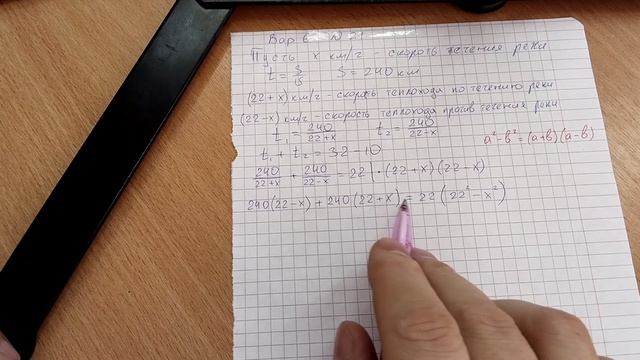 Вар 6 № 21
Пусть x км/ч - скорость течения реки
t = S/v S = 240 км
(22+x) км/ч - скорость теплохода по течению реки
(22-x) км/ч - скорость теплохода против течения реки
t₁ = 240/(22+x) t₂ = 240/(22-x)
a² - b² = (a+b)(a-b)
t₁ + t₂ = 32 - 10
240/(22+x) + 240/(22-x) = 22 | · (22+x)(22-x)
240(22-x) + 240(22+x) = 22(22² - x²)